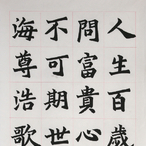 人生百歳
問富貴心
不可期世
海尊浩歌